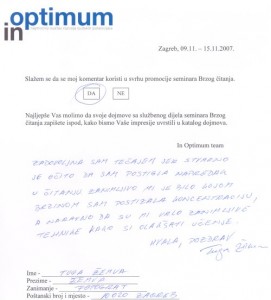 optimum
in
Zagreb, 09.11. – 15.11.2007.
Slažem se da se moj komentar koristi u svrhu promocije seminara Brzog čitanja.
DA
NE
Najljepše Vas molimo da svoje dojmove sa službenog dijela seminara Brzog
čitanja zapišete ispod, kako bismo Vaše impresije uvrstili u katalog dojmova.
In Optimum team
ZADOVOLJNA SAM TEČAJEM JER STVARNO
JE OČITO DA SAM POSTIGLA NAPREDAK
U ČITANJU. ZANIMLJIVO MI JE BILO KOJOM
BRZINOM SAM POSTIZALA KONCENTRACIJU,
A NARAVNO DA SU MI VRLO ZANIMLJIVE
TEHNIKE KAKO SI OLAKŠATI UČENJE.
HVALA, POZDRAV
Ime –
Prezime –
Zanimanje –
Poštanski broj i mjesto – ZAGREB